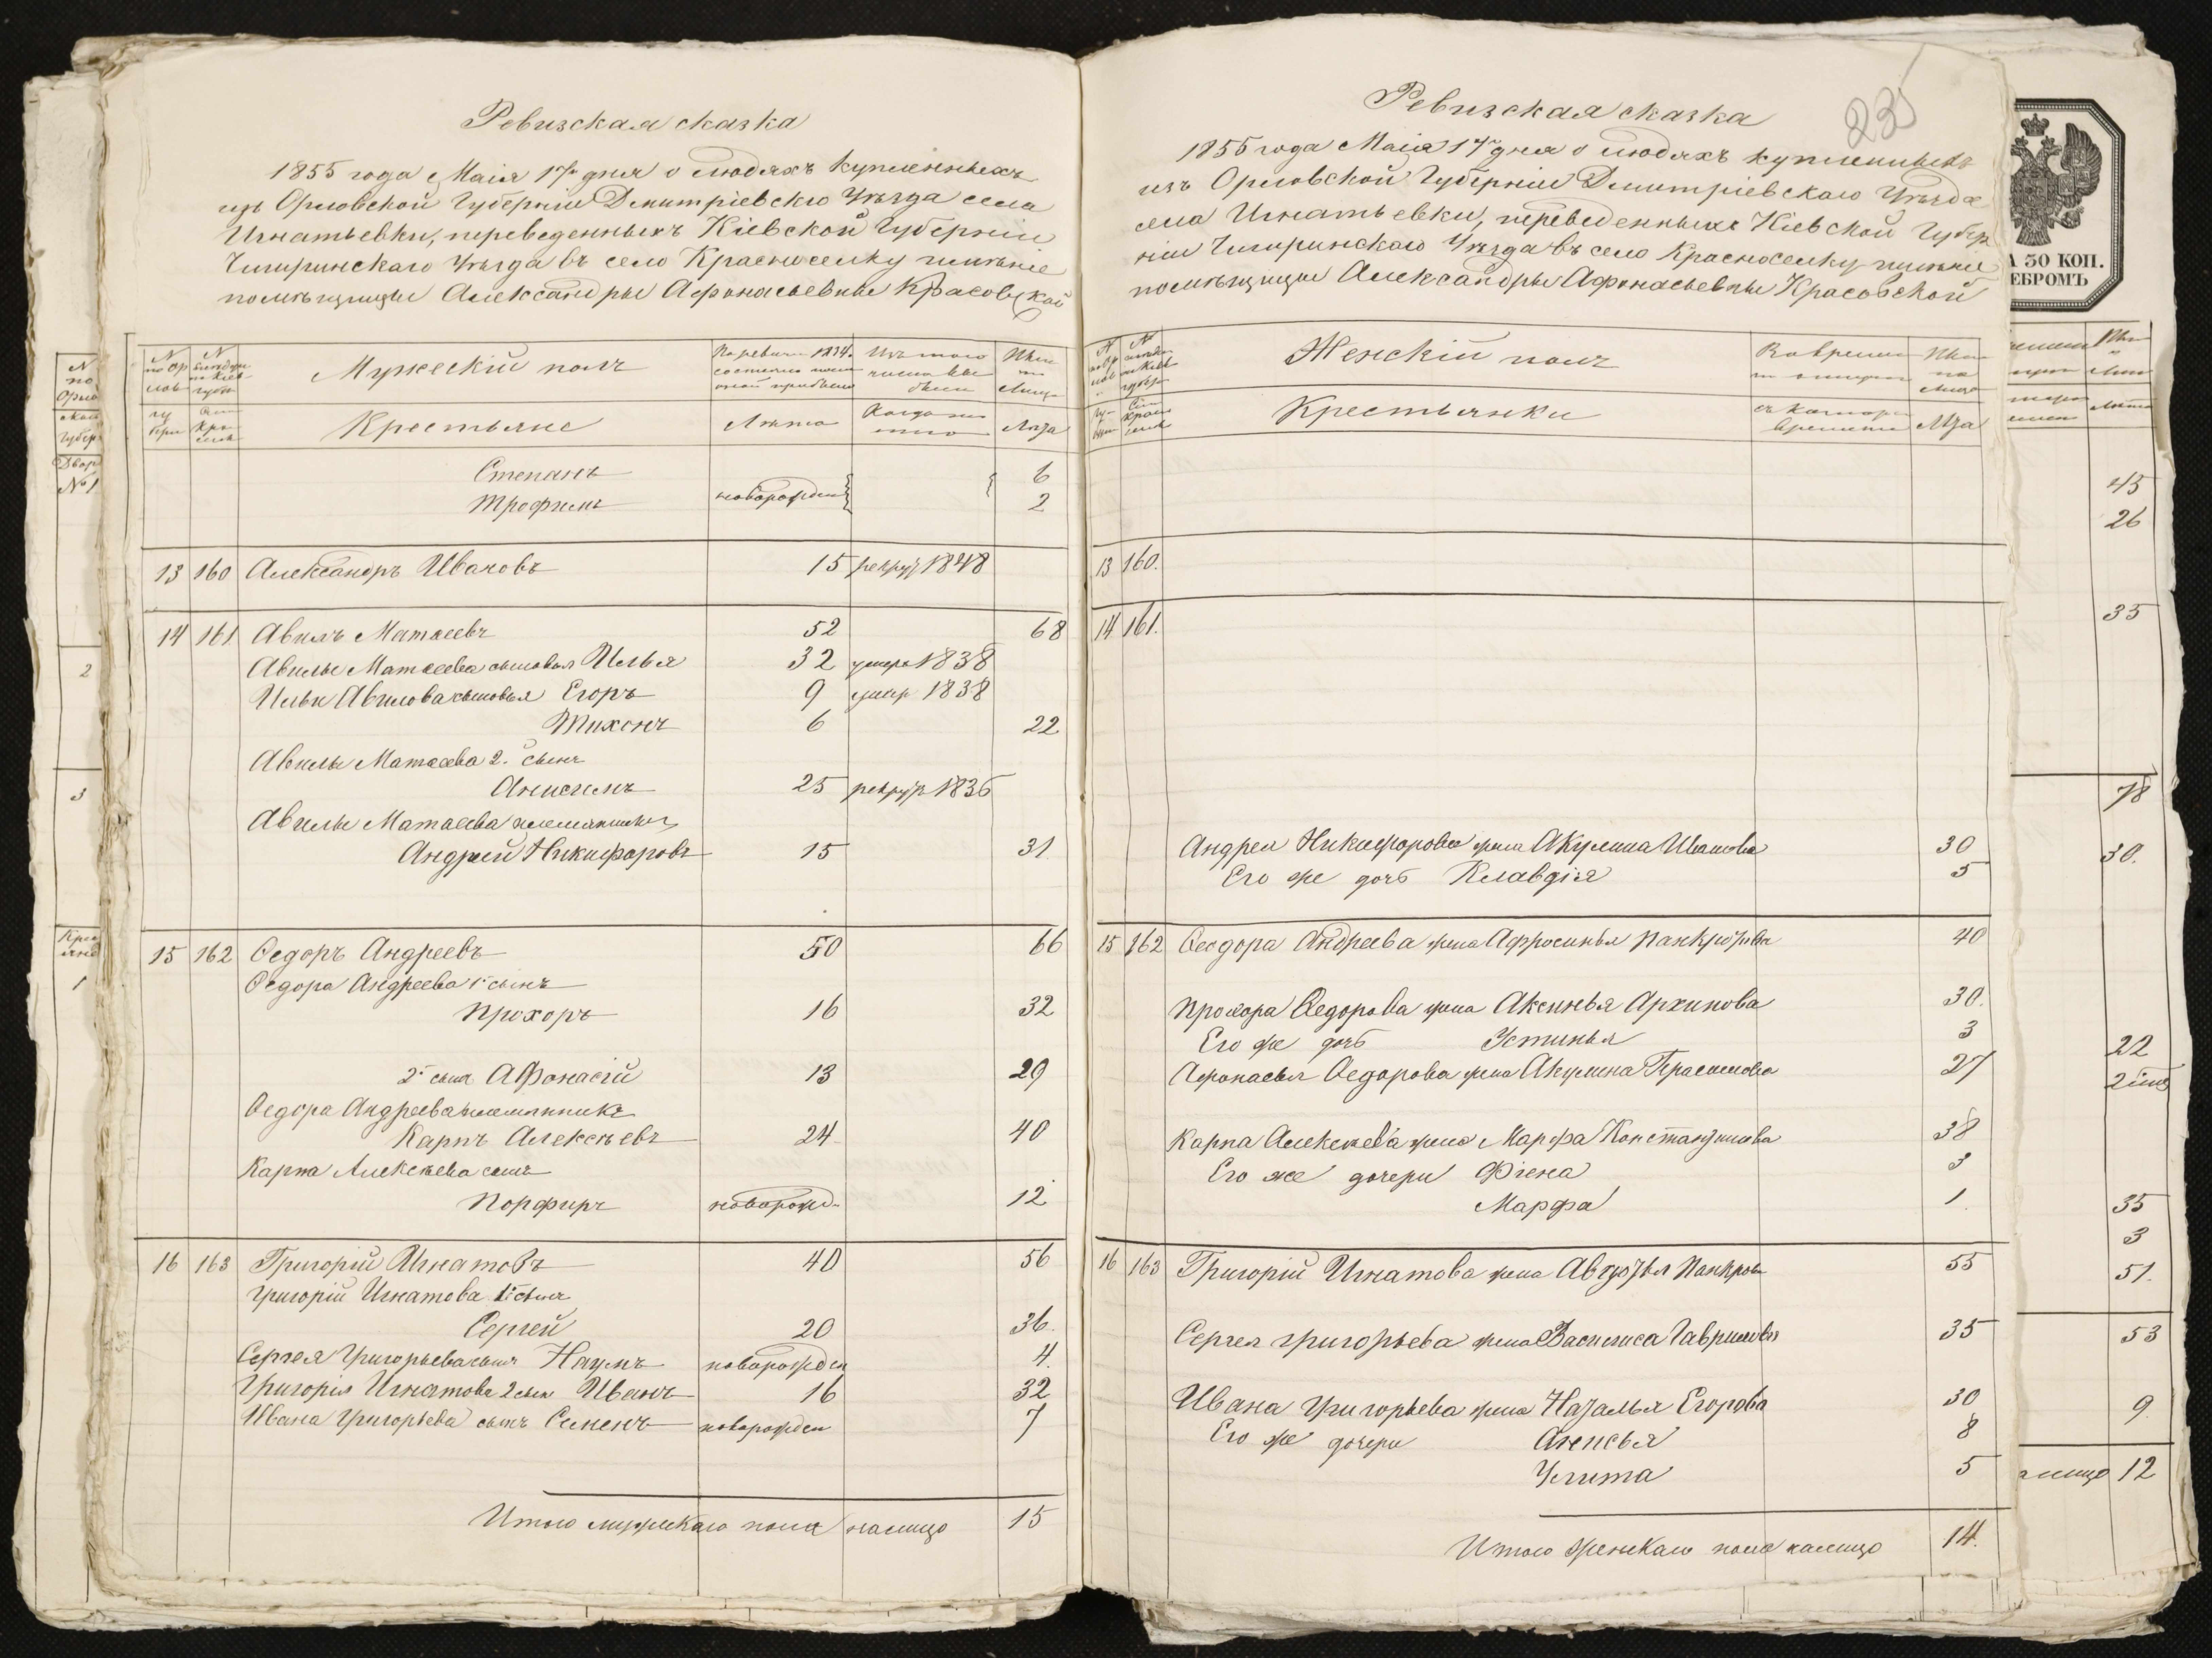 Ревизская сказка
1855 года Маія 17 дня о людяхъ купленныхъ
изъ Орловской Губерніи Дмитріевскго Уѣзда села
Игнатьевки, переведенныхъ Кіевской Губерніи
Чигиринскаго Уѣзда въ село Красноселку имѣніе
помѣщицы Александры Афонасьевны Красовской
Мужескій полъ
Крестьяне
Лѣта
Лѣта
Степанъ 6
Трофимъ новорожден 2
13 160 Александръ Ивановъ 15 рекрут 1848
14 161 Авилъ Матвеевъ 52 68
Авилы Матвеева сыновья Илья 32 умеръ 1838
Ильи Авилова сыновья Егоръ 9 умер 1838
Тихонъ 6 22
Авилы Матвеева 2. сынъ
Анисимъ 25 рекрут 1836
Авилы Матвеева племянникъ
Андрей Никифоровъ 15 31
15 162 Ѳедоръ Андреевъ 50 66
Ѳедора Андреева 1 сынъ
Прохоръ 16 32
2 сынъ Афонасій 13 29
Ѳедора Андреева племянникъ
Карпъ Алексѣевъ 24 40
Карпа Алексѣева сынъ
Порфиръ новорожд- 12
16 163 Григорій Игнатовъ 40 56
Григорій Игнатова 1й сынъ
Сергей 20 36.
Сергея Григорьева сынъ Наумъ новорожден 4.
Григорія Игнатова 2 сын Иванъ 16 32
Ивана Григорьева сынъ Семенъ новорожден 7
Итого мужескаго пола налицо 15
235
Ревизская сказка
1855 года Маія 17 дня о людяхъ купленныхъ
изъ Орловской Губерніи Дмитріевскаго Уѣзда
села Игнатьевки, переведенныхъ Кіевской Губер
ніи Чигиринскаго Уѣзда въ село Красноселку имѣніе
помѣщицы Александры Афонасьевны Красовской
Женскій полъ
Крестьянки
13 160.
14 161.
Андрея Никифорова жена Акулина Иванова 30
Его же дочь Клавдія 5
15 162 Ѳеодора Андреева жена Афросинья Панкратова 40
Прохора Ѳедорова жена Аксинья Архипова 30.
Его же дочь Устинья 3
Афонасья Ѳедорова жена Акулина Герасимова 27
Карпа Алексѣева жена Марфа Константинова 38
Его же дочери Фіена 3
Марфа 1.
16 163 Григорій Игнатова жена Авдотья Панкров 55
Сергея Григорьева жена Василиса Гаврилова 35
Ивана Григорьева жена Наталья Егорова 30
Его же дочери Анисья 8
Улита 5
Итого женскаго пола налицо 14.
А 50 КОП.
ЕБРОМЪ
43
26
35
78
30.
22
35
3
51.
53
9
12
N
по
Орло
ской
Губер
Двор
№1
2
3
Кре
яне
1